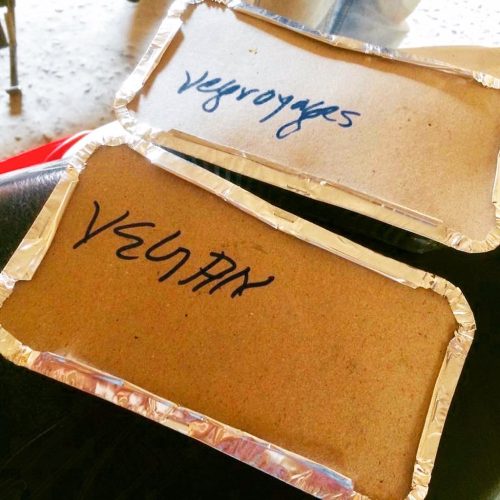 vegvoyages
VEGAN